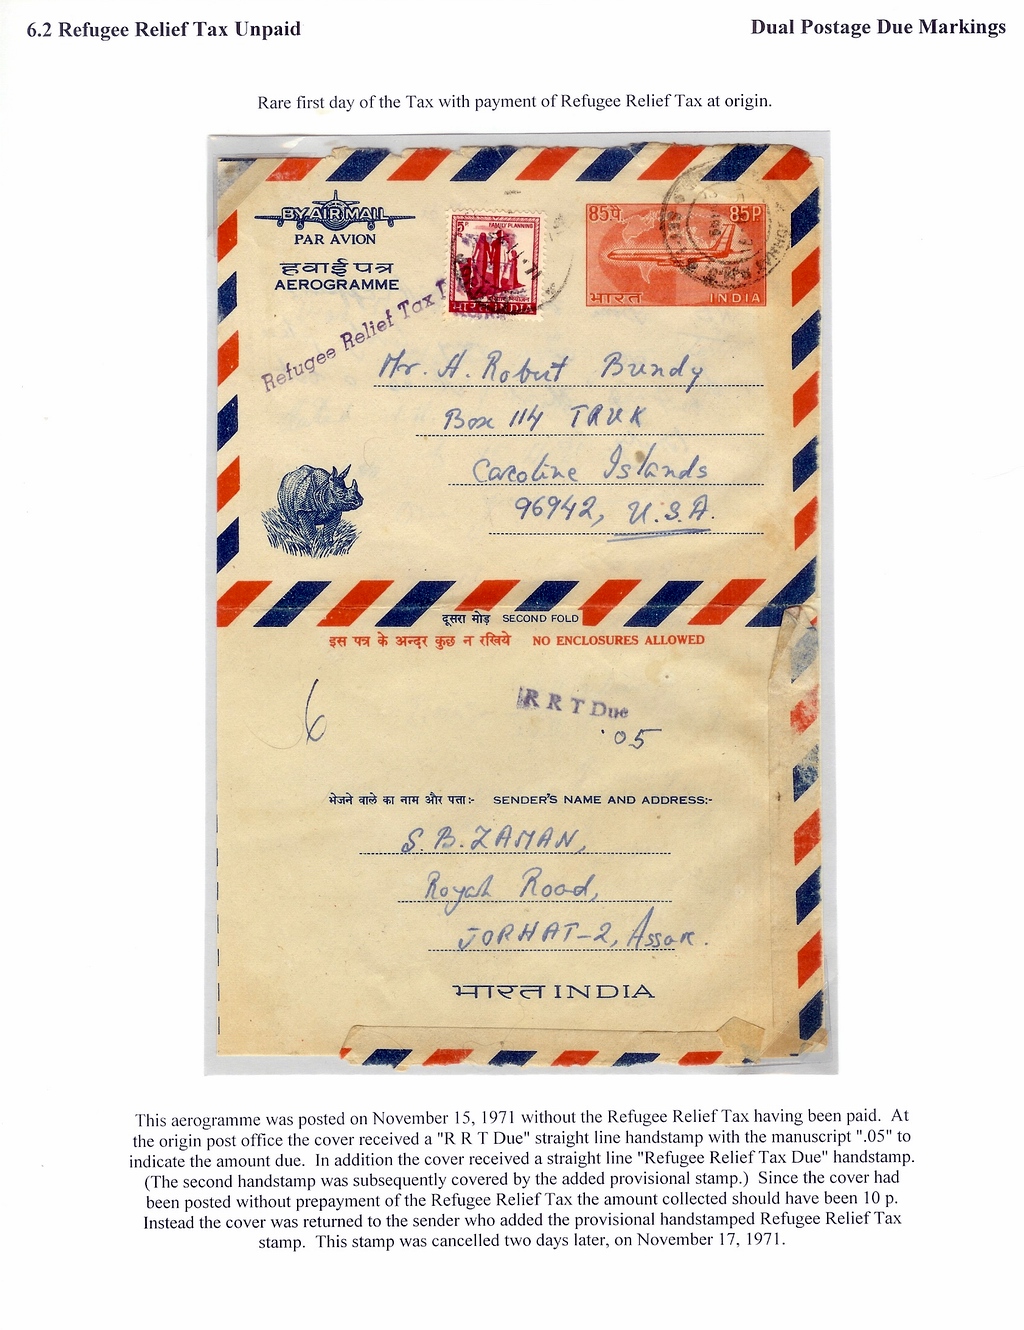 6.2 Refugee Relief Tax Unpaid
Dual Postage Due Markings
Rare first day of the Tax with payment of Refugee Relief Tax at origin.
BY AIR MAIL
PAR AVION
हवाई पत्र
AEROGRAMME
5P
FAMILY PLANNING
भारत INDIA
85पै.
85P
भारत
INDIA
Refugee Relief Tax
Mr. H. Robert Bundy
Box 114 TRUK
Caroline Islands
96942, U.S.A.
दूसरा मोड़ SECOND FOLD
इस पत्र के अन्दर कुछ न रखिये NO ENCLOSURES ALLOWED
6
R R T Due
.05
भेजने वाले का नाम और पता:- SENDER'S NAME AND ADDRESS:-
S. B. ZAMAN,
Road,
JORHAT-2, Assam.
भारत INDIA
This aerogramme was posted on November 15, 1971 without the Refugee Relief Tax having been paid. At
the origin post office the cover received a "R R T Due" straight line handstamp with the manuscript ".05" to
indicate the amount due. In addition the cover received a straight line "Refugee Relief Tax Due" handstamp.
(The second handstamp was subsequently covered by the added provisional stamp.) Since the cover had
been posted without prepayment of the Refugee Relief Tax the amount collected should have been 10 p.
Instead the cover was returned to the sender who added the provisional handstamped Refugee Relief Tax
stamp. This stamp was cancelled two days later, on November 17, 1971.